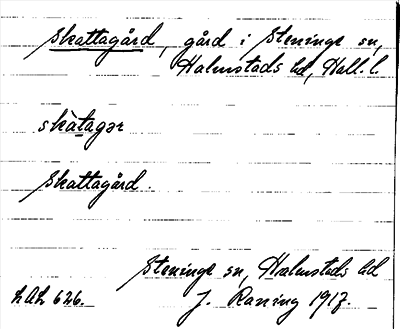 Skattagård, gård i Steninge sn,
Halmstads hd, Hall. l.
skàtagər
Skattagård.
Steninge sn, Halmstads hd
LAL 626. J. Raning 1917.